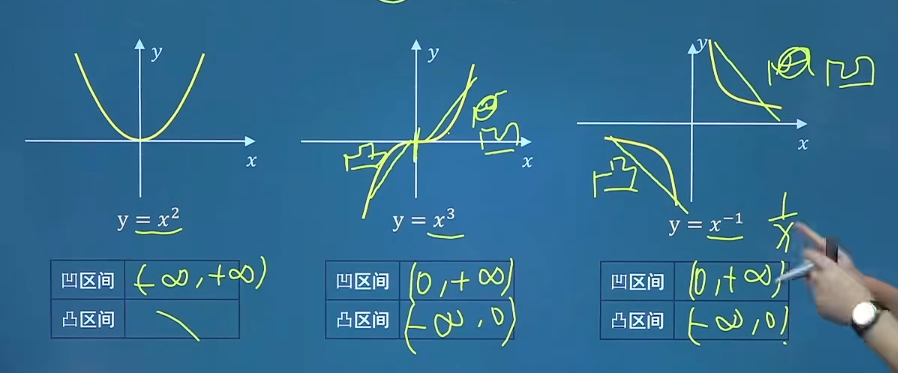 y
x
y = x²
凹区间 (-∞, +∞)
凸区间 \
y
x
凸
凹
y = x³
凹区间 (0, +∞)
凸区间 (-∞, 0)
y
x
凹
凸
y = x⁻¹
1/x
凹区间 (0, +∞)
凸区间 (-∞, 0)